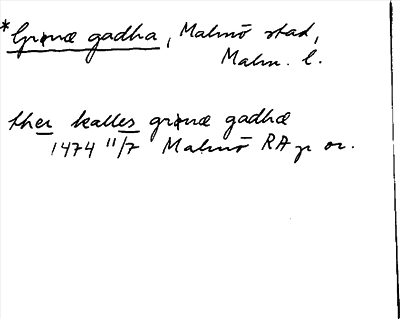 *Grønæ gadha, Malmö stad,
Malm. l.
ther kalles grønæ gadhæ
1474 11/7 Malmö RA p or.